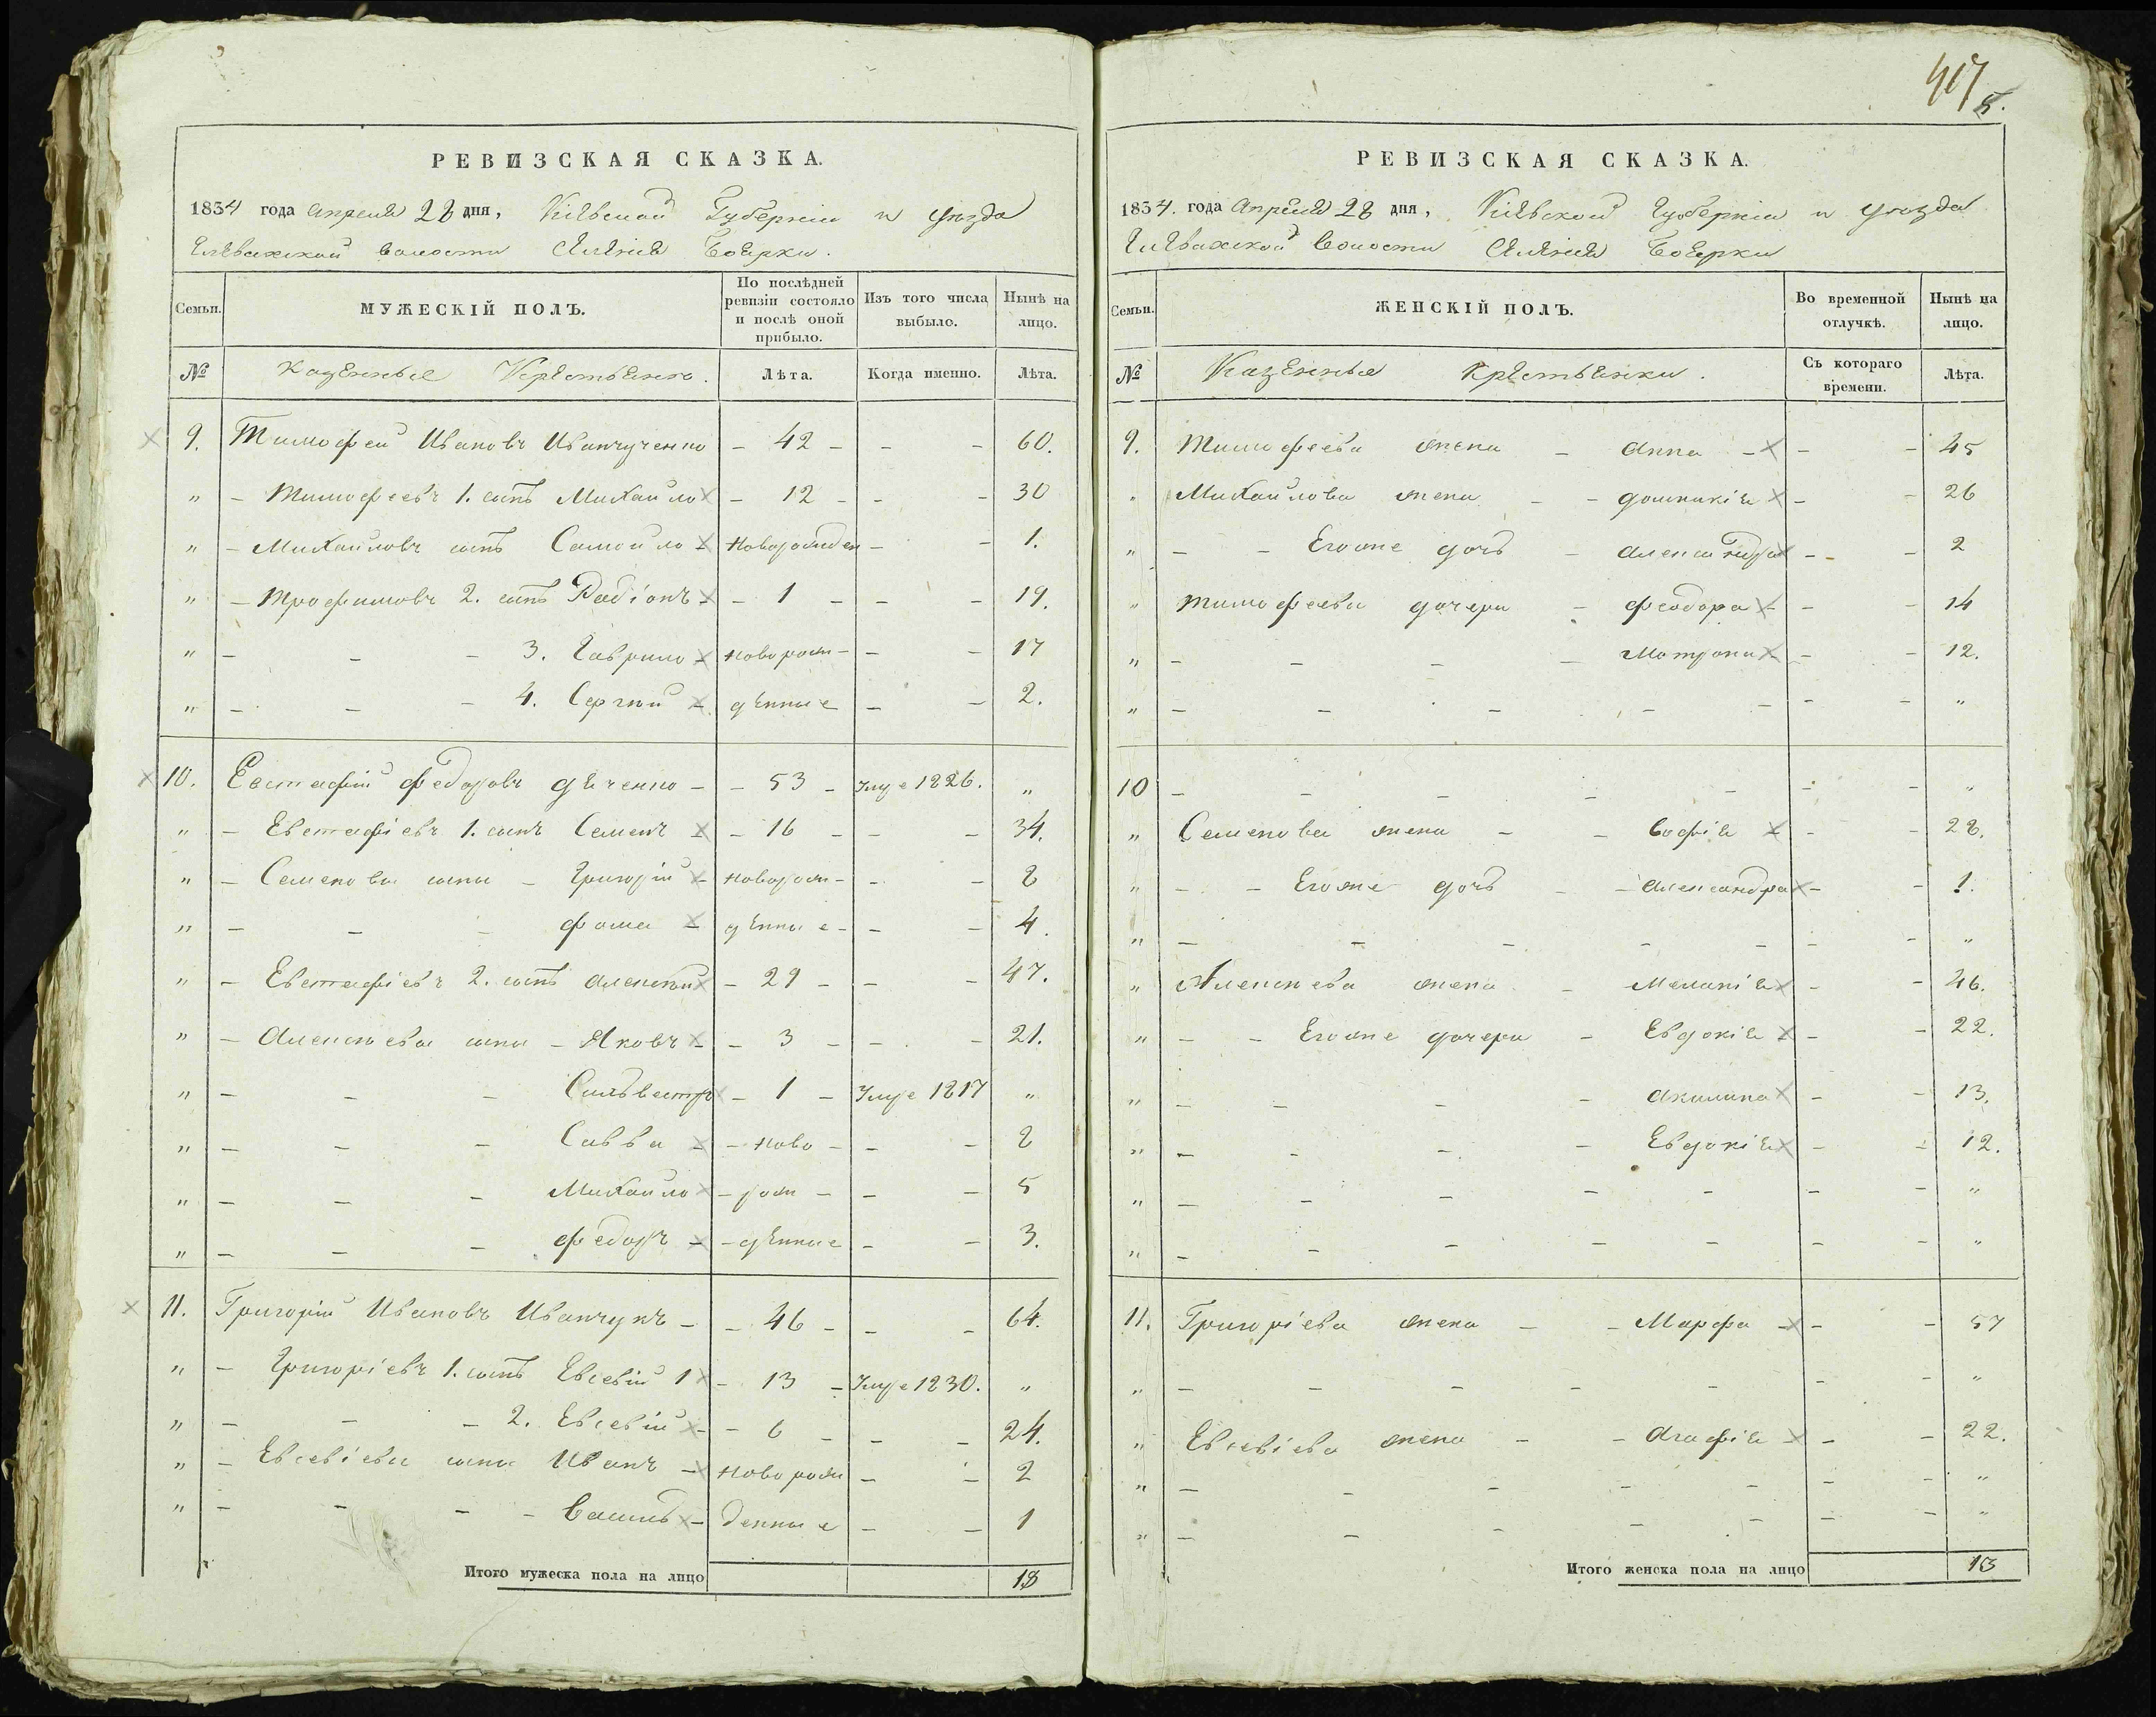 417
5.
РЕВИЗСКАЯ СКАЗКА.
1834 года Апреля 28 дня, Кіевской Губерніи и уезда
волости Селенія Боерки.
Семьи. МУЖЕСКІЙ ПОЛЪ. По послѣдней ревизіи состояло и послѣ оной прибыло. Изъ того числа выбыло. Нынѣ на лицо.
№ Казенные Крестьяне. Лѣта. Когда именно. Лѣта.
9. Тимофей Ивановъ Иванчученко - 42 - - - 60.
" - Тимофеевъ 1. сынъ Михайло - 12 - - - 30
" - Михайловъ сынъ Самойло - Новорожден - - 1.
" - Трофимовъ 2. сынъ Радіонъ - - 1 - - - 19.
" - - - 3. Гаврило -Новорож- - - 17
" - - - 4. Сергѣй - денные - - 2.
10. Евстафій Федоровъ Дяченко - - 53 - Умре 1826. "
" - Евстафіевъ 1. сынъ Семенъ - 16 - - - 34.
" - Семеновы сыны - Григорій - Новорож- - - 8
" - - - Фома - денные - - - 4.
" - Евстафіевъ 2. сынъ Алексѣй - 29 - - - 47.
" - Алексѣевы сыны - Яковъ - - 3 - - - 21.
" - - - Сильвестръ - 1 - Умре 1817 "
" - - - Савва - - Ново - - - 8
" - - - Михайло - рож - - - 5
" - - - Федоръ - - денные - - 3.
11. Григорій Ивановъ Иванчукъ - - 46 - - - 64.
" - Григоріевъ 1. сынъ Евсевій 1 - 13 - Умре 1830. "
" - - - 2. Евсевій - - 6 - - - 24.
" - Евсевіевы сыны Иванъ - Новорож - - 2
" - - - - Василь - денные - - 1
Итого мужеска пола на лицо 18
РЕВИЗСКАЯ СКАЗКА.
1834. года Апреля 28 дня, Кіевской Губерніи и уезда
волости Селенія Боерки
Семьи. ЖЕНСКІЙ ПОЛЪ. Во временной отлучкѣ. Нынѣ на лицо.
№ Казенныя Крестьянки. Съ котораго времени. Лѣта.
9. Тимофеева жена - Анна - - - 45
" Михайлова жена - - Домникія - - 26
" - - Егоже дочь - Александра - - 2
" Тимофеевы дочери - Феодора - - - 14
" - - - - Мотрона - - - 12.
" - - - - - - - "
10 - - - - - - - "
" Семенова жена - - Софія - - 28.
" - - Егоже дочь - - Александра - - 1.
" - - - - - - - "
" Алексѣева жена - Меланія - - 46.
" - - Егоже дочери - Евдокія - - 22.
" - - - - Акилина - - 13.
" - - - - Евдокія - - 12.
" - - - - - - - "
" - - - - - - - "
11. Григоріева жена - - Марфа - - - 57
" - - - - - - - "
" Евсевіева жена - - Агафія - - - 22.
" - - - - - - - "
" - - - - - - - "
Итого женска пола на лицо 13